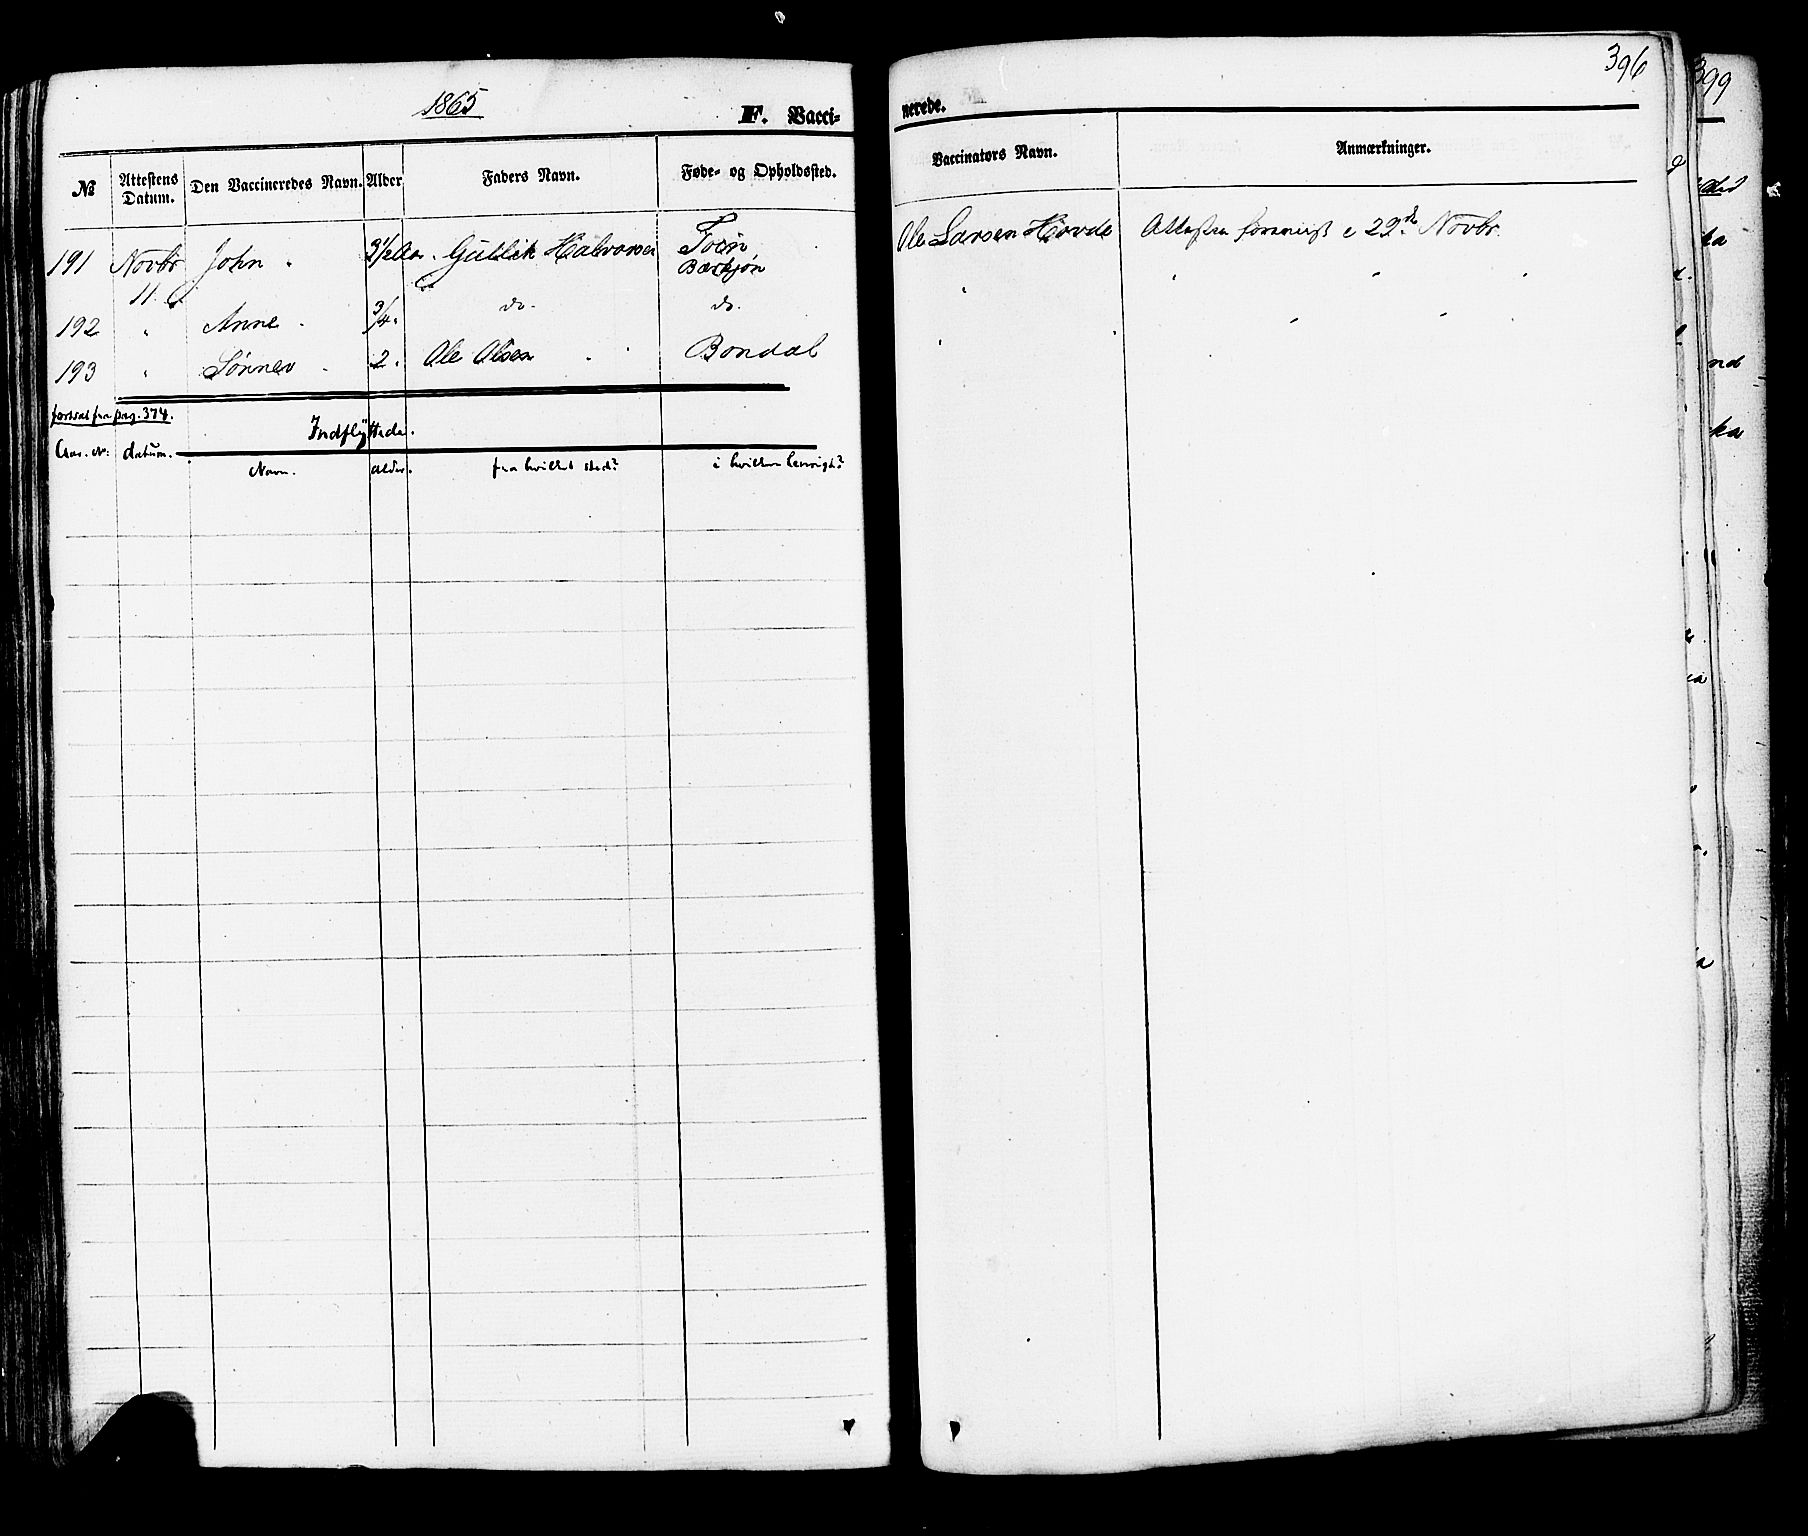 396
1865
F. Vacci-
nerede.
№ Attestens Datum. Den Vaccineredes Navn. Alder Faders Navn. Føde- og Opholdssted. Vaccinators Navn. Anmærkninger.
191 Novbr 11 John 3 1/2 Aar Gullik Halvorsen Ole Larsen Hovde 29de Novbr.
192 " Anne 3/4 do. do. " " " "
193 " Sønnev 2 Ole Olsen Bondal " " "
fortsat fra pag. 374.
Indflyttede.
No. datum. Navn. alder. fra hvilket sted? i hvilken hensigt?
399